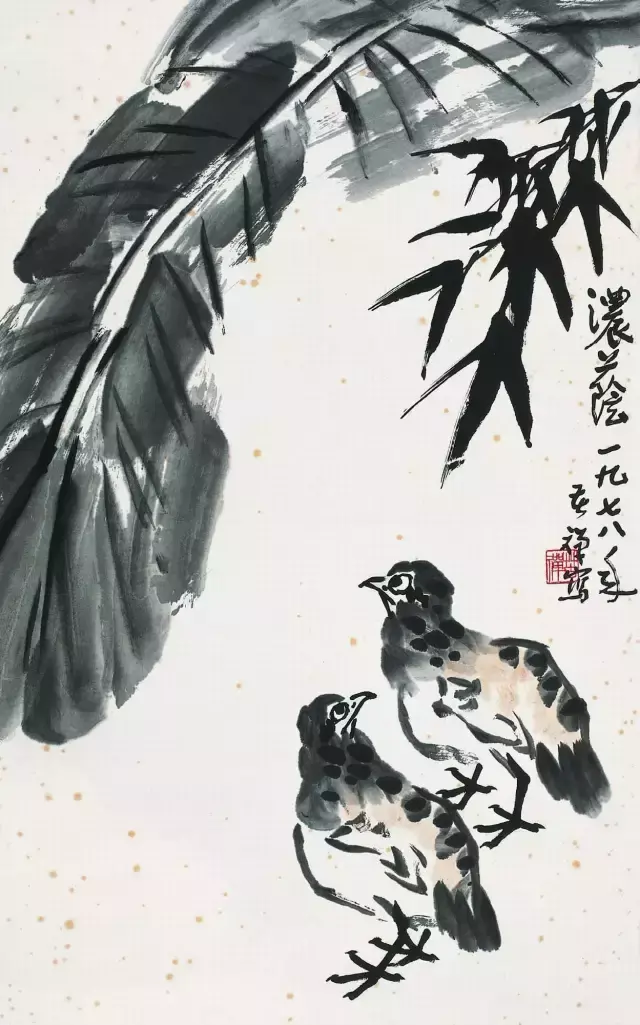 濃蔭一九七八年
苦禅寫